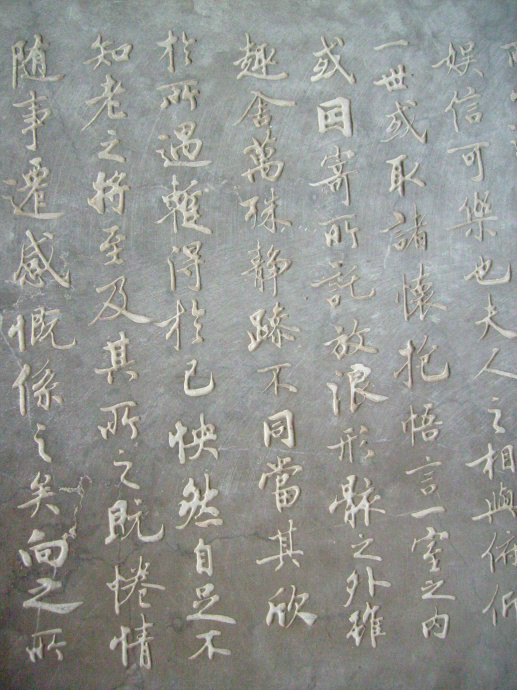 娱信可樂也夫人之相與俯仰
一世或取諸懷抱悟言一室之内
或因寄所託放浪形骸之外雖
趣舍萬殊静躁不同當其欣
於所遇蹔得於己怏然自足不
知老之將至及其所之既惓情
随事遷感慨係之矣向之所